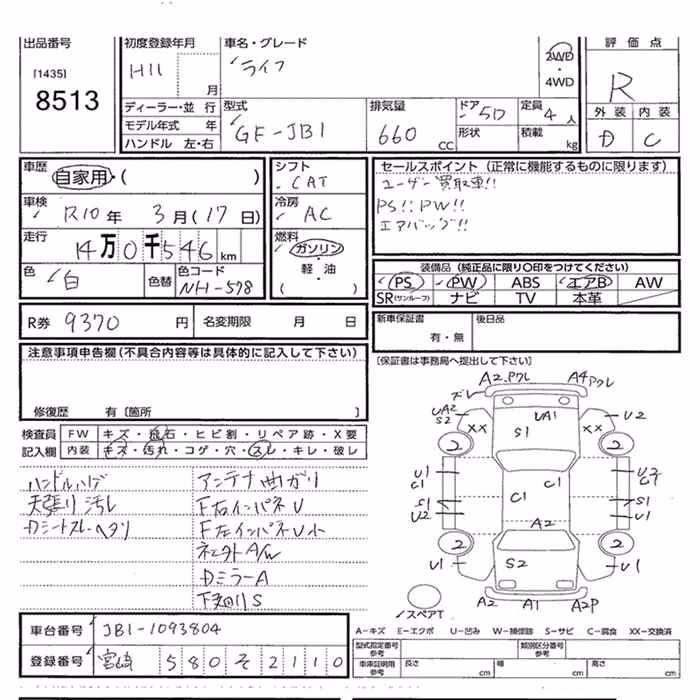 出品番号
[1435]
8513
初度登録年月
H11 月
車名・グレード
ライフ
2WD
・
4WD
評価点
R
外装 内装
D C
ディーラー・並行
モデル年式 年
ハンドル 左・右
型式
GF-JB1
排気量
660 CC
ドア 5D
形状
定員 4人
積載 kg
車歴
自家用・( )
車検
R10年 3月(17日)
走行
14万0千546km
色 白
色替
色コード
NH-578
シフト
CAT
冷房
AC
燃料
ガソリン
・
軽・油
( )
セールスポイント (正常に機能するものに限ります)
ユーザー買取車!!
PS!! PW!!
エアバッグ!!
装備品 (純正品に限り○印をつけてください)
PS PW ABS エアB AW
SR(サンルーフ) ナビ TV 本革
R券 9370 円
名変期限 月 日
新車保証書
有・無
後日品
[保証書は事務局へ提出して下さい]
注意事項申告欄(不具合内容等は具体的に記入して下さい)
修復歴 有〔箇所 〕
検査員
記入欄
FW キズ・飛石・ヒビ割・リペア跡・X要
内装 キズ・汚れ・コゲ・穴・スレ・キレ・破レ
ハンドルハゲ
天張り汚レ
Dシートスレ・ヘタリ
アンテナ曲ガリ
F右インパネU
F左インパネU小
ネクストA/W
DミラーA
下廻りS
A2.Pワレ
A4アワレ
ズレ
UA2
S2
XX
UA1
S1
XX
U2
2
2
U1
C1
C1
C1
S1
U2
S1
U1
A2
2
2
U1
S2
U1
A2
A1
A2P
スペアT
A-キズ E-エクボ U-凹み W-補修跡 S-サビ C-腐食 XX-交換済
車台番号 JB1-1093804
登録番号 宮崎 580 そ 2110
型式指定番号
参考
類別区分番号
参考
車庫証明用
参考
長さ cm
幅 cm
高さ cm